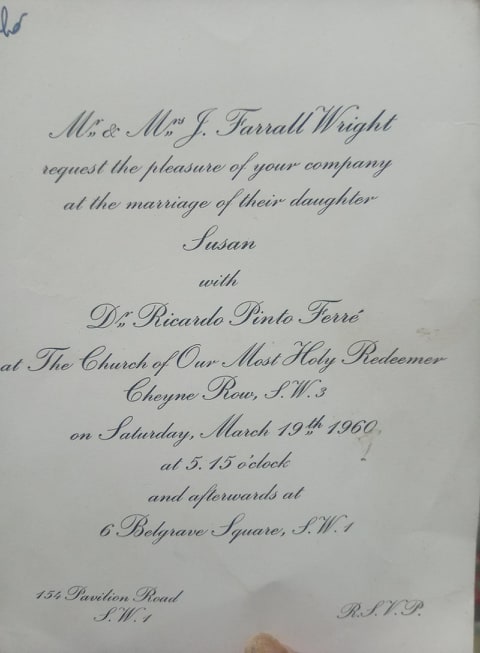 Mr. & Mrs. J. Farrall Wright
request the pleasure of your company
at the marriage of their daughter
Susan
with
Dr. Ricardo Pinto Ferré
at The Church of Our Most Holy Redeemer
Cheyne Row, S.W.3
on Saturday, March 19th 1960
at 5.15 o'clock
and afterwards at
6 Belgrave Square, S.W.1
154 Pavilion Road
S.W.1
R.S.V.P.